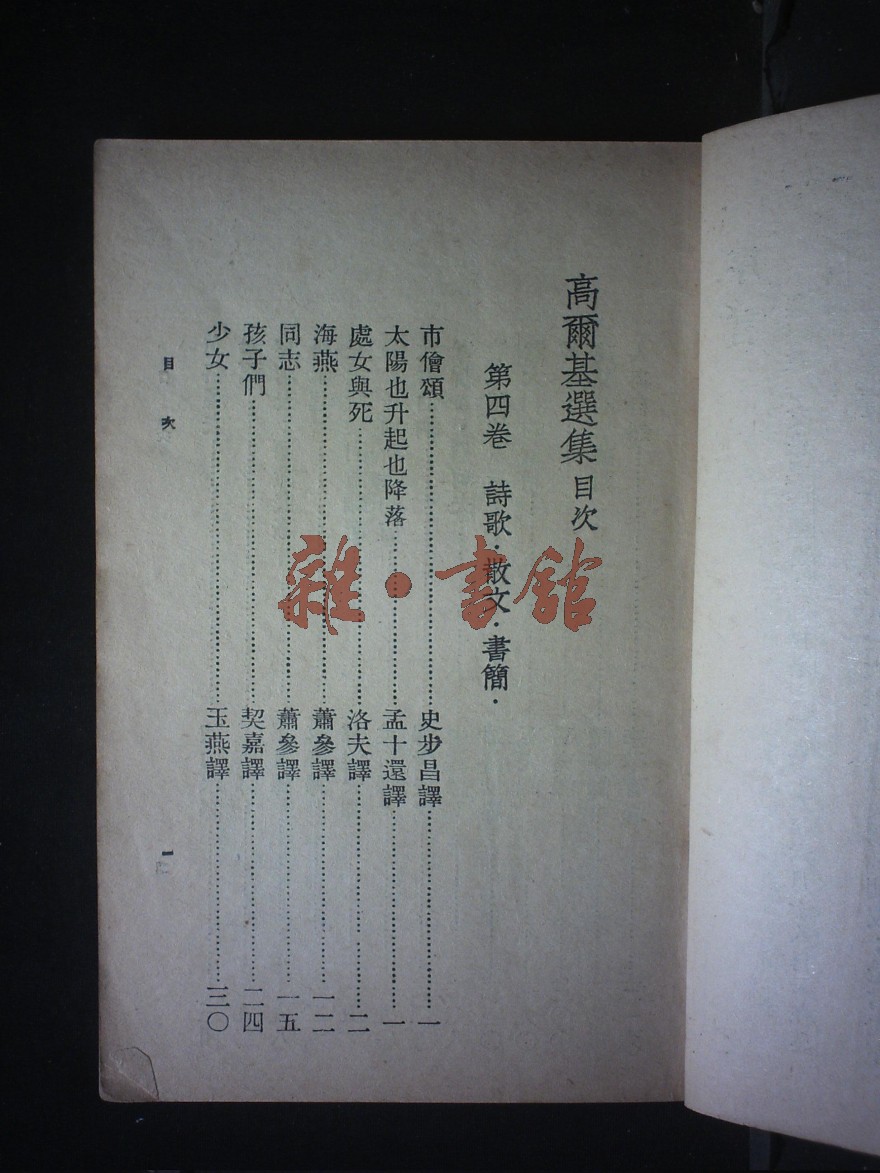 高爾基選集目次
第四卷　詩歌·散文·書簡·
市儈頌……史步昌譯……一
太陽也升起也降落……孟十還譯……一
處女與死……洛夫譯……二
海燕……蕭參譯……一二
同志……蕭參譯……一五
孩子們……契嘉譯……二四
少女……玉燕譯……三〇
目次
一
雜·書館